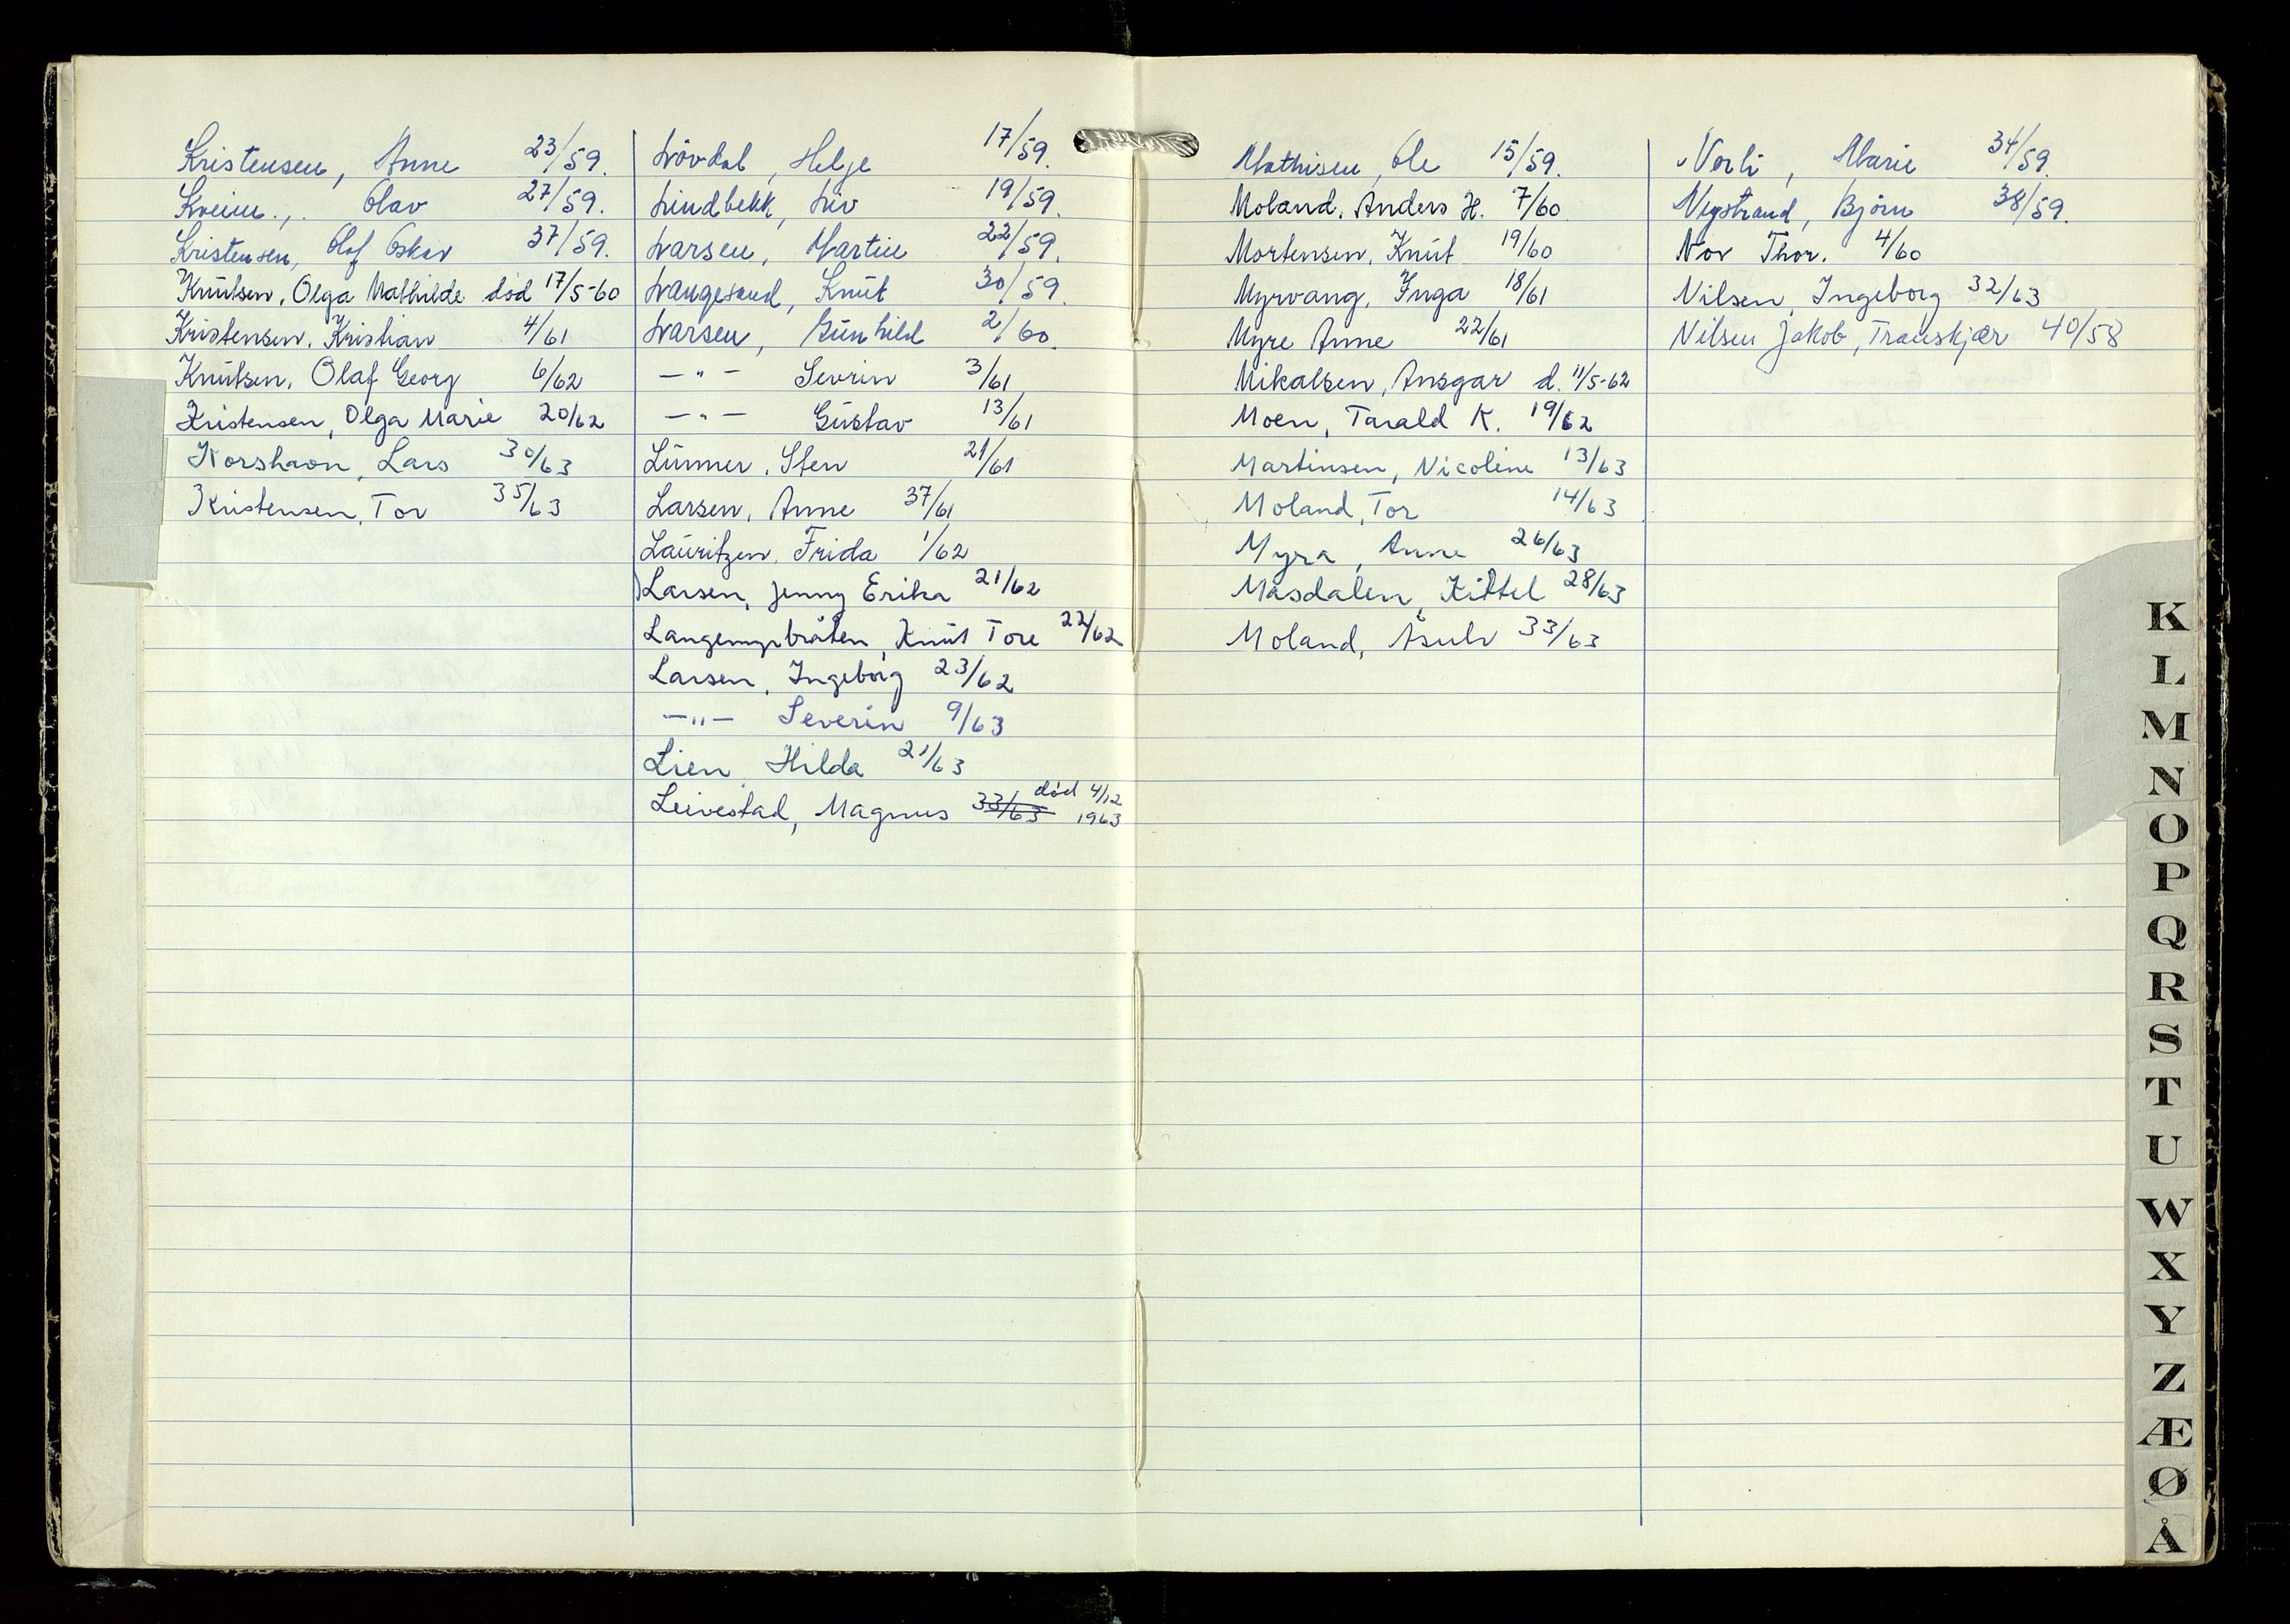 Kristensen, Anne 23/59.
Kveim., Olav 27/59.
Kristensen, Olaf Oskar 37/59.
Knutsen, Olga Mathilde død 17/5-60
Kristensen, Kristian 4/61
Knutsen, Olaf Georg 6/62
Kristensen, Olga Marie 20/62
Korshavn, Lars 30/63
Kristensen, Tor 35/63
Lövdal, Helje 17/59.
Lindbekk, Liv 19/59.
Larsen, Martin 22/59.
Langesund, Knut 30/59.
Larsen, Gunhild 2/60.
— " — Sevrin 3/61
— " — Gustav 13/61
Lunner, Sten 21/61
Larsen, Anne 37/61
Lauritzen, Frida 1/62
Larsen, Jenny Erika 21/62
Langemyrbråten, Knut Tore 22/62
Larsen, Ingeborg 23/62
— " — Severin 9/63
Lien, Hilda 21/63
Leivestad, Magnus 33/63 død 4/12 1963
Mathisen, Ole 15/59.
Moland, Anders H. 7/60
Mortensen, Knut 19/60
Myrvang, Inga 18/61
Myre Anne 22/61
Mikalsen, Ansgar d. 11/5-62
Moen, Tarald K. 19/62
Martinsen, Nicoline 13/63
Moland, Tor 14/63
Myra, Anne 26/63
Masdalen, Kittel 28/63
Moland, Åsulv 33/63
Verli, Marie 34/59.
Nystrand, Björn 38/59.
Nor Thor. 4/60
Nilsen, Ingeborg 32/63
Nilsen Jakob, Traneskjær 40/58
K
L
M
N
O
P
Q
R
S
T
U
W
X
Y
Z
Æ
Ø
Å